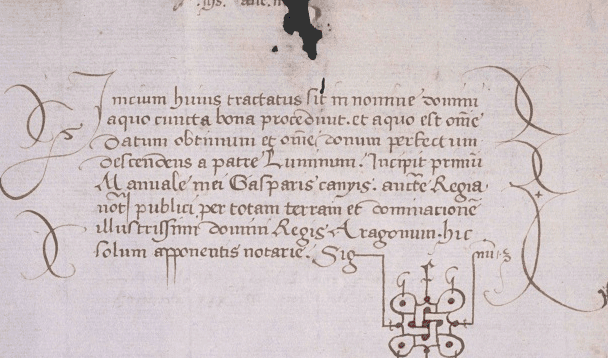 Inicium huius tractatus sit in nomine domini
a quo cuncta bona procedunt. et a quo est om̄e
datum obtimum et om̄e donum perfectum
descendens a patre Luminum. Incipit primū
Manuale mei Gasparis canyis. aucte Regia
not publici per totam terram et dominacionē
illustrissimi domini Regis Aragonum. hic
solum apponentis notarie. Sig num